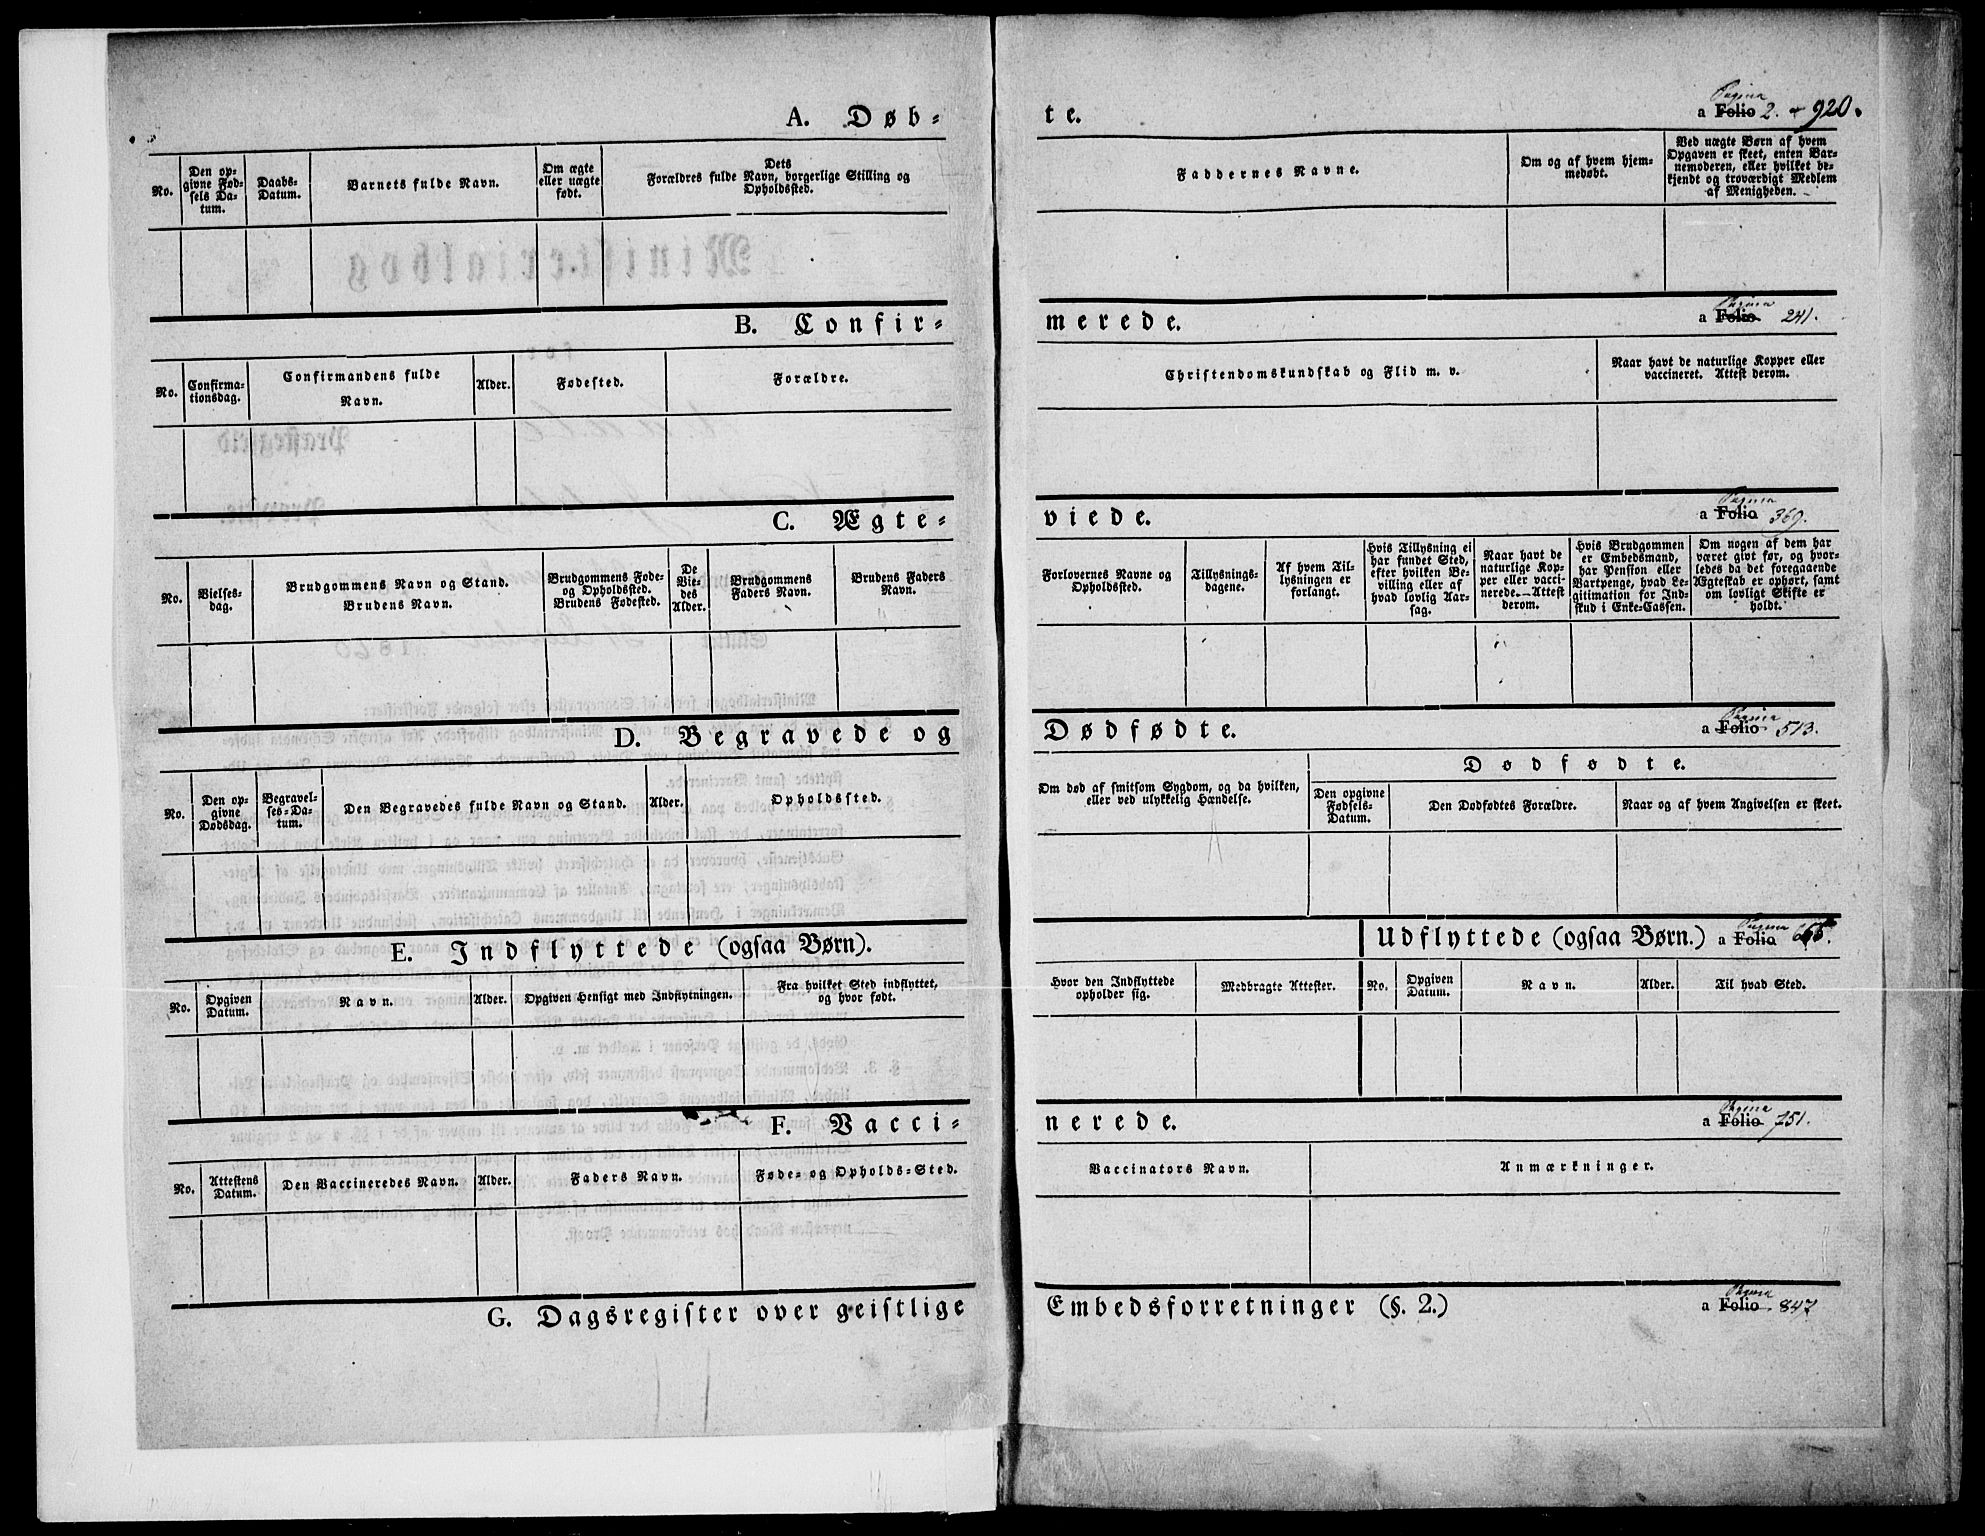 A. Døb-
te.
Pagina
a Folio 2. - 920.
No.
Den op-
givne Fød-
sels Da-
tum.
Daabs-
Datum.
Barnets fulde Navn.
Om ægte
eller uægte
født.
Dets
Forældres fulde Navn, borgerlige Stilling og
Opholdssted.
Faddernes Navne.
Om og af hvem hjem-
medøbt.
Ved uægte Børn af hvem
Opgaven er skeet, enten Bar-
nemoderen, eller hvilket be-
kjendt og troværdigt Medlem
af Menigheden.
Ministerialbog
B. Confir-
merede.
Pagina
a Folio 241.
for
No.
Confirma-
tionsdag.
Confirmandens fulde
Navn.
Alder.
Fødested.
Forældre.
Christendomskundskab og Flid m. v.
Naar havt de naturlige Kopper eller
vaccineret. Attest derom.
Præstegjeld
Provstie.
C. Ægte-
viede.
Pagina
a Folio 369.
No.
Vielses-
dag.
Brudgommens Navn og Stand.
Brudens Navn.
Brudgommens Føde-
og Opholdssted.
Brudens Fødested.
De
Vie-
des
Alder.
Brudgommens
Faders Navn.
Brudens Faders
Navn.
Forlovernes Navne og
Opholdssted.
Tillysnings-
dagene.
Af hvem Til-
lysningen er
forlangt.
Hvis Tillysning ei
har fundet Sted,
efter hvilken Be-
villing eller af
hvad lovlig Aar-
sag.
Naar havt de
naturlige Kop-
per eller vacci-
nerede.—Attest
derom.
Hvis Brudgommen
er Embedsmand,
har Pension eller
Vartpenge, hvad Le-
gitimation for Ind-
skud i Enke-Cassen.
Om nogen af dem har
været givt før, og hvor-
ledes da det foregaaende
Ægteskab er ophørt, samt
om lovligt Skifte er
holdt.
D. Begravede og
Dødfødte.
Pagina
a Folio 513.
No.
Den op-
givne
Dødsdag.
Begravel-
ses-Da-
tum.
Den Begravedes fulde Navn og Stand.
Alder.
Opholdssted.
Om død af smitsom Sygdom, og da hvilken,
eller ved ulykkelig Hændelse.
Dødfødte.
Den opgivne
Fødsels-
Datum.
Den Dødfødtes Forældre.
Naar og af hvem Angivelsen er skeet.
E. Indflyttede (ogsaa Børn).
Udflyttede (ogsaa Børn.)
Pagina
a Folio
No.
Opgiven
Datum.
Navn.
Alder.
Opgiven Hensigt med Indflytningen.
Fra hvilket Sted indflyttet,
og hvor født.
Hvor den Indflyttede
opholder sig.
Medbragte Attester.
No.
Opgiven
Datum.
Navn.
Alder.
Til hvad Sted.
F. Vacci-
nerede.
Pagina
a Folio 751.
No.
Attestens
Datum.
Den Vaccineredes Navn.
Alder.
Faders Navn.
Føde- og Opholds-Sted.
Vaccinators Navn.
Anmærkninger.
G. Dagsregister over geistlige
Embedsforretninger (§. 2.)
Pagina
a Folio 847